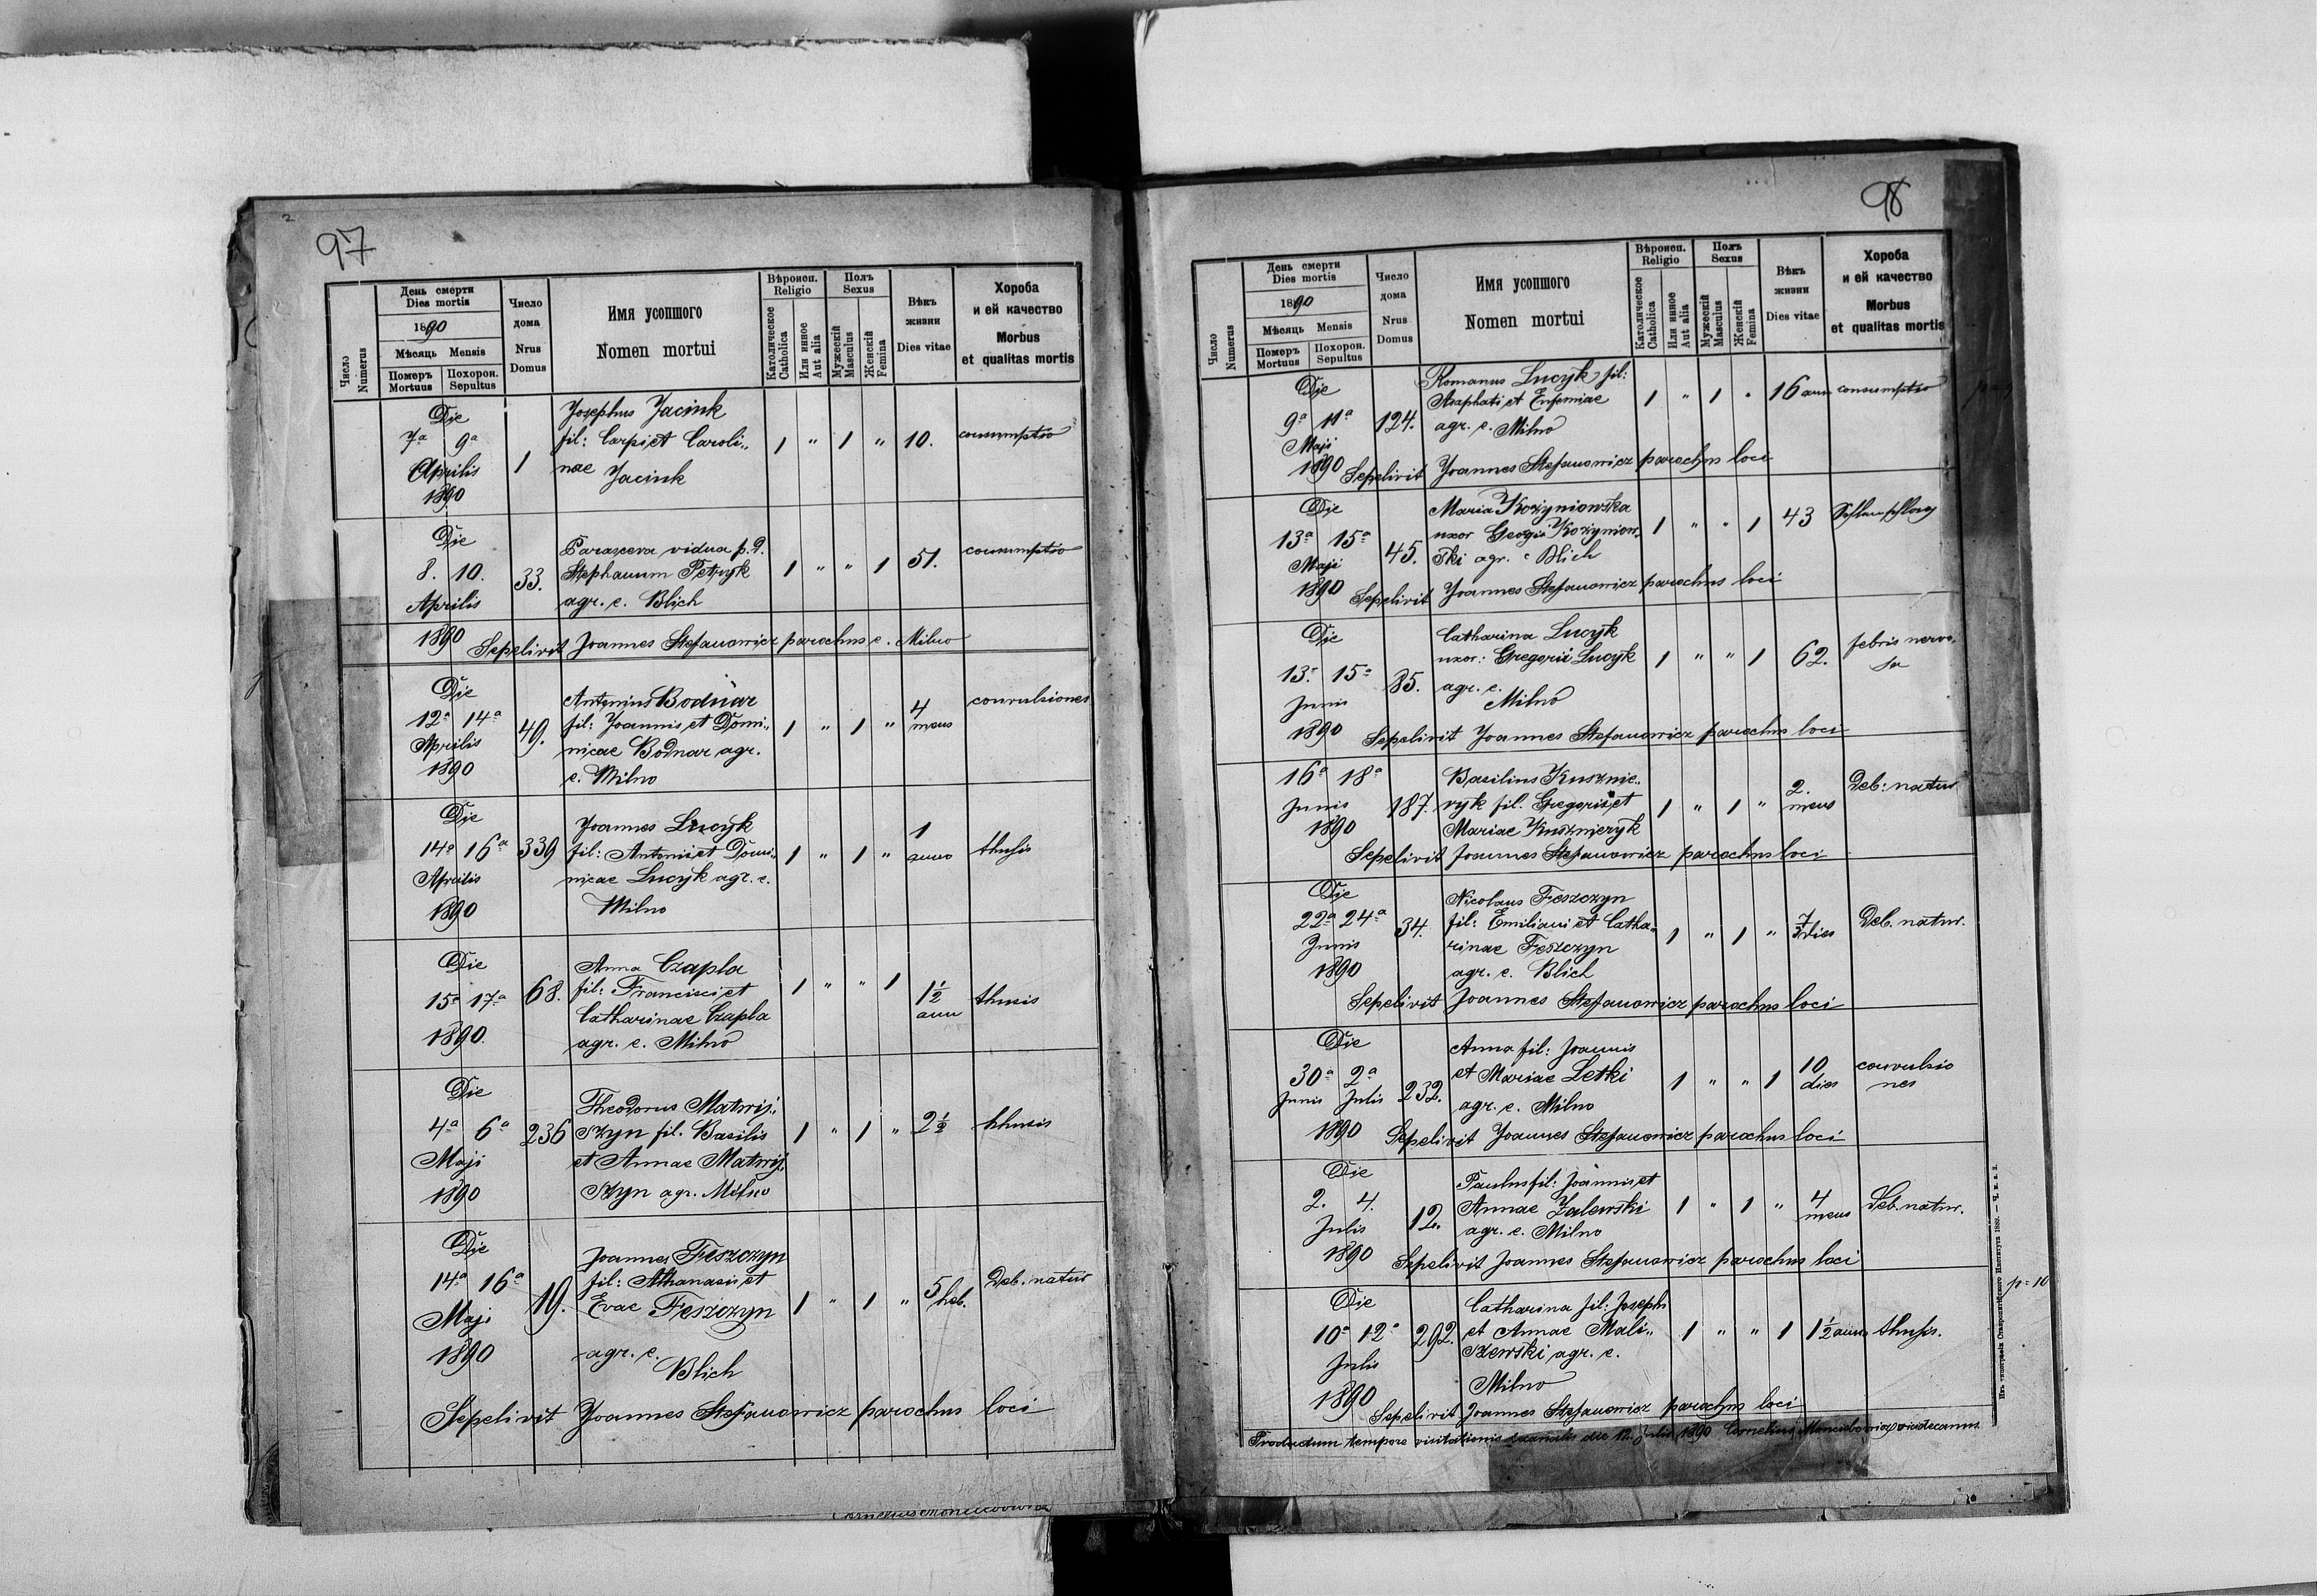 97
Число
Numerus
День смерти
Dies mortis
1890
Мѣсяць Mensis
Померъ Mortuus
Похорон. Sepultus
Число дома
Nrus Domus
Имя усопшого
Nomen mortui
Вѣроисп.
Religio
Католическое Catholica
Или инное Aut alia
Полъ
Sexus
Мужескій Masculus
Женскій Femina
Вѣкъ жизни
Dies vitae
Хороба и ей качество
Morbus et qualitas mortis
Die
Josephus Jacink
7ª 9ª fil: Carpi et Caroli„ 1 " 1 " 10. consumptio
Aprilis 1 nae Jacink
1890
Die
Parasceva vidua p. d.
8. 10. 33. Stephanum Petryk 1 " " 1 51. consumptio
Aprilis agr. e. Blich
1890 Sepelivit Joannes Stefanowicz parochus e. Milno
Die
Antonius Bodnar
12ª 14ª 49. fil: Joannis et Domi„ 1 " 1 " 4 mens convulsiones
Aprilis nicae Bodnar agr.
1890 e. Milno
Die
Joannes Lucyk
14ª 16ª 339 fil: Antonii et Domi„ 1 " 1 " 1 anno thusis
Aprilis nicae Lucyk agr. e.
1890 Milno
Die
Anna Czapla
15ª 17ª 68. fil: Francisci et 1 " " 1 1½ ann thusis
Catharinae Czapla
1890. agr. e. Milno
Die
Theodorus Matwij„
4ª 6ª 236 szyn fil. Basilis 1 " 1 " 2½ thusis
Maji et Annae Matwij„
1890 szyn agr. Milno
Die
Joannes Feszczyn
14ª 16ª 19. fil: Athanasii et
Maji Evae Feszczyn 1 " 1 " 5 heb. Deb. natur
1890 agr. e.
Blich
Sepelivit Joannes Stefanowicz parochus loci
98
Число
Numerus
День смерти
Dies mortis
1890
Мѣсяць Mensis
Померъ Mortuus
Похорон. Sepultus
Число дома
Nrus Domus
Имя усопшого
Nomen mortui
Вѣроисп.
Religio
Католическое Catholica
Или инное Aut alia
Полъ
Sexus
Мужескій Masculus
Женскій Femina
Вѣкъ жизни
Dies vitae
Хороба и ей качество
Morbus et qualitas mortis
Die
Romanus Lucyk fil:
9ª 11ª 124. Asaphati et Eufemiae 1 " 1 " 16 ann consumptio
Maji agr. e. Milno
1890 Sepelivit Joannes Stefanowicz parochus loci
Die
Maria Kożyniowska
13ª 15ª 45. uxor Georgii Kożyniow„ 1 " " 1 43
Maji ski agr. e Blich
1890 Sepelivit Joannes Stefanowicz parochus loci
Die
Catharina Lucyk
13ª 15ª 85. uxor: Gregorii Lucyk 1 " " 1 62. febris nervo„ sa
Junii agr. e.
Milno
1890 Sepelivit Joannes Stefanowicz parochus loci
16ª 18ª Basilius Kusznie„
Junii 187. ryk fil. Gregorii et 1 " 1 " 2. mens Deb: natur
1890 Mariae Kusznieryk
Sepelivit Joannes Stefanowicz parochus loci
Die
Nicolaus Feszczyn
22ª 24ª 34. fil: Emiliani et Catha„ 1 " 1 " 7 dies Deb. natur.
Junii rinae Feszczyn
1890 agr. e. Blich
Sepelivit Joannes Stefanowicz parochus loci
Die
Anna fil: Joannis
30ª 2ª et Mariae Letki 1 " " 1 10 dies convulsio nes
Junii Julii 232. agr. e. Milno
1890 Sepelivit Joannes Stefanowicz parochus loci
Die
Paulus fil: Joannis et
2. 4. 12. Annae Zalewski 1 " 1 " 4 mens Deb. natur.
Julii agr. e. Milno
1890 Sepelivit Joannes Stefanowicz parochus loci
Die
Catharina fil: Josephi
10ª 12ª 292. et Annae Mali„ 1 " " 1 1½ ann thusis.
Julii szewski agr. e.
Milno
1890 Sepelivit Joannes Stefanowicz parochus loci
Productum tempore visitationis decanalis die 12. Julii 1890 Cornelius vicedecanus.
p=10